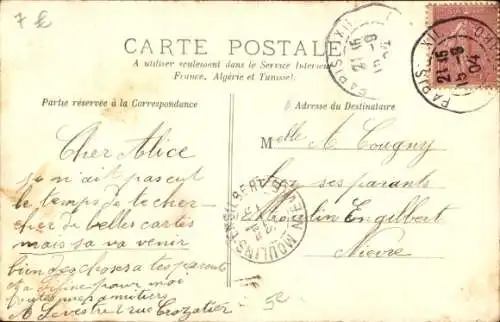 7 k
CARTE POSTALE
A utiliser seulement dans le Service Intérieur
France, Algérie et Tunisie).
Partie réservée à la Correspondance
Adresse du Destinataire
PARIS XII
21 15
5 - 9
04
PARIS XII
21 15
5 - 9
04
Cher Alice
je n'ait pas eut
le temps de te cher-
cher de belles cartes
mais sa va venir
bien des choses a tes parents
toutes mes amitiers
A Sevestre 1 rue Crozatier
Melle A Cougny
chez ses parants
Moulin Engilbert
Nievre
MOULINS-ENGILBERT
5c